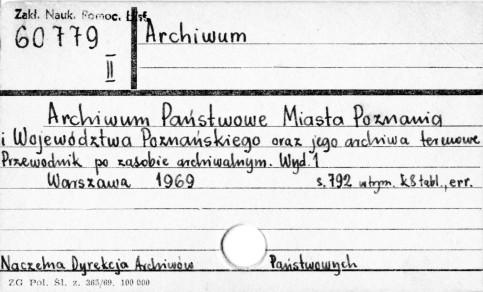 Zakł. Nauk. Pomoc. Hist.
60779
II
Archiwum
Archiwum Państwowe Miasta Poznania
i Województwa Poznańskiego oraz jego archiwa terenowe
Przewodnik po zasobie archiwalnym. Wyd. 1
Warszawa 1969 s. 792 w tym. tabl., err.
Naczelna Dyrekcja Archiwów Państwowych
ZG Pol. Śl. z. 363/69. 100 000